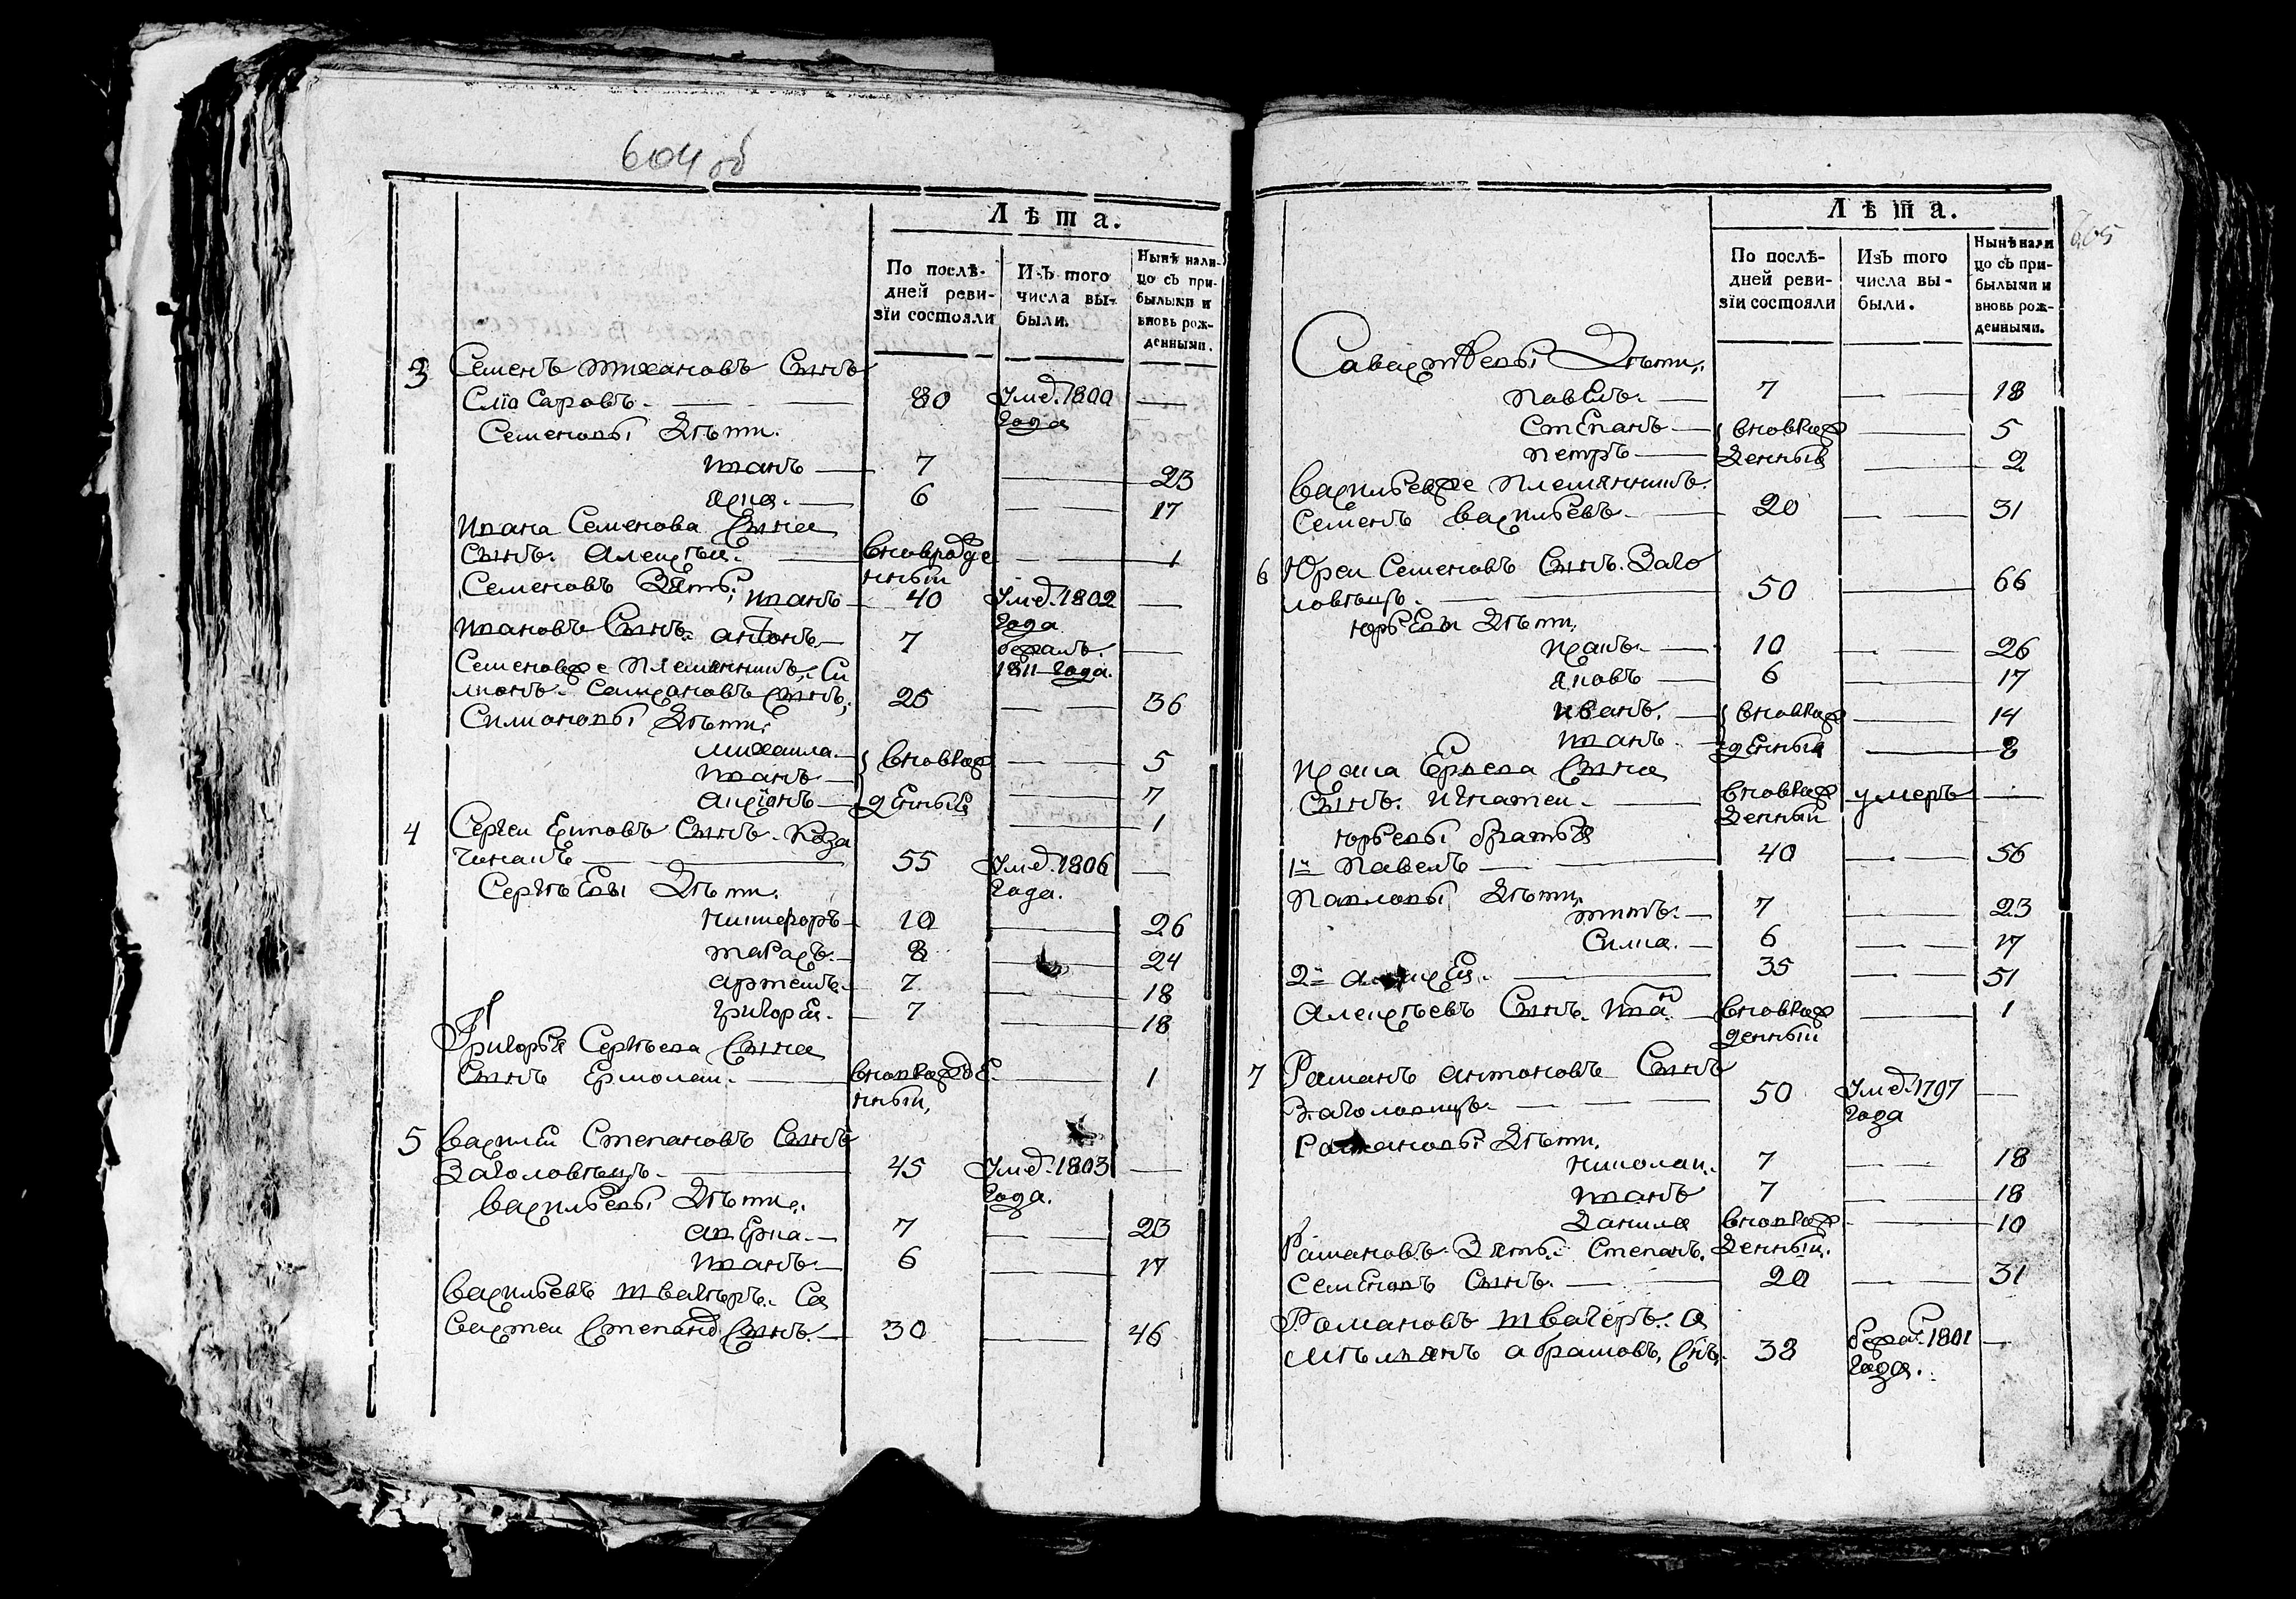 604 об
Лѣта.
По послѣдней ревизїи состояли
Изъ того числа выбыли.
Нынѣ налицо съ прибылыми и вновь рожденными.
3 Семенъ тихановъ Сынъ
Слюсаровъ. 80 Умер. 1800 года —
Семеновы Дѣти.
иванъ — 7 — 23
6 — 17
ивана Семенова Сына
Сынъ. Алексѣи. вновь рожденный — 1
Семеновъ Зять, иванъ 40 Умер. 1802 года —
ивановъ Сынъ. антонъ 7 бежалъ 1811 года. —
Семеновъ же племянникъ. Си
монъ Сынъ, 25 — 36
Симоновы Дѣти,
михаила вновь рож — 5
иванъ — 7
денный — 1
4 Сергеи Сынъ Коза
55 Умер. 1806 года. —
Сергѣевы Дѣти.
никифоръ 10 — 26
тарасъ. 8 — 24
артемъ. 7 — 18
григореи. 7 — 18
Григорья Сергѣева Сына
Сынъ Ермолаи. вновь рожденный, — 1
5 Василеи Степановъ Сынъ
Заголовѣцъ. 45 Умер. 1803 года. —
васильевы Дѣти.
аверка 7 — 23
иванъ 6 — 17
васильевъ шваггеръ. Са
вастеи Степановъ Сынъ. 30 — 46
605
Лѣта.
По послѣдней ревизїи состояли
Изъ того числа выбыли.
Нынѣ налицо съ прибылыми и вновь рожденными.
Савастеевы Дѣти.
павелъ. 7 — 18
Степанъ вновь рож — 5
петръ денные — 2
васильев же племянникъ.
Семенъ васильевъ. 20 — 31
6 Юреи Семеновъ Сынъ. Заго
ловѣцъ. 50 — 66
юрьевы Дѣти,
10 — 26
яковъ 6 — 17
иванъ. вновь рож — 14
иванъ. денный — 8
Сына
Сынъ. игнатеи. вновь рожденный умеръ —
юрьевы братья
1й Павелъ 40 — 56
Павловы Дѣти,
титъ. 7 — 23
Сила. 6 — 17
2й алексеи. 35 — 51
Алексѣевъ Сынъ. иван вновь рожденный — 1
7 Раманъ антоновъ Сынъ
Заголовцъ. 50 Умер. 1797 года —
Рамановы Дѣти.
николаи. 7 — 18
иванъ 7 — 18
данила вновь рожденный. — 10
Рамановъ Зять. Степанъ.
Семеновъ Сынъ. 20 — 31
Романовъ шваггеръ. О
мѣльянъ абрамовъ, Снъ. 38 бежал 1801 года. —